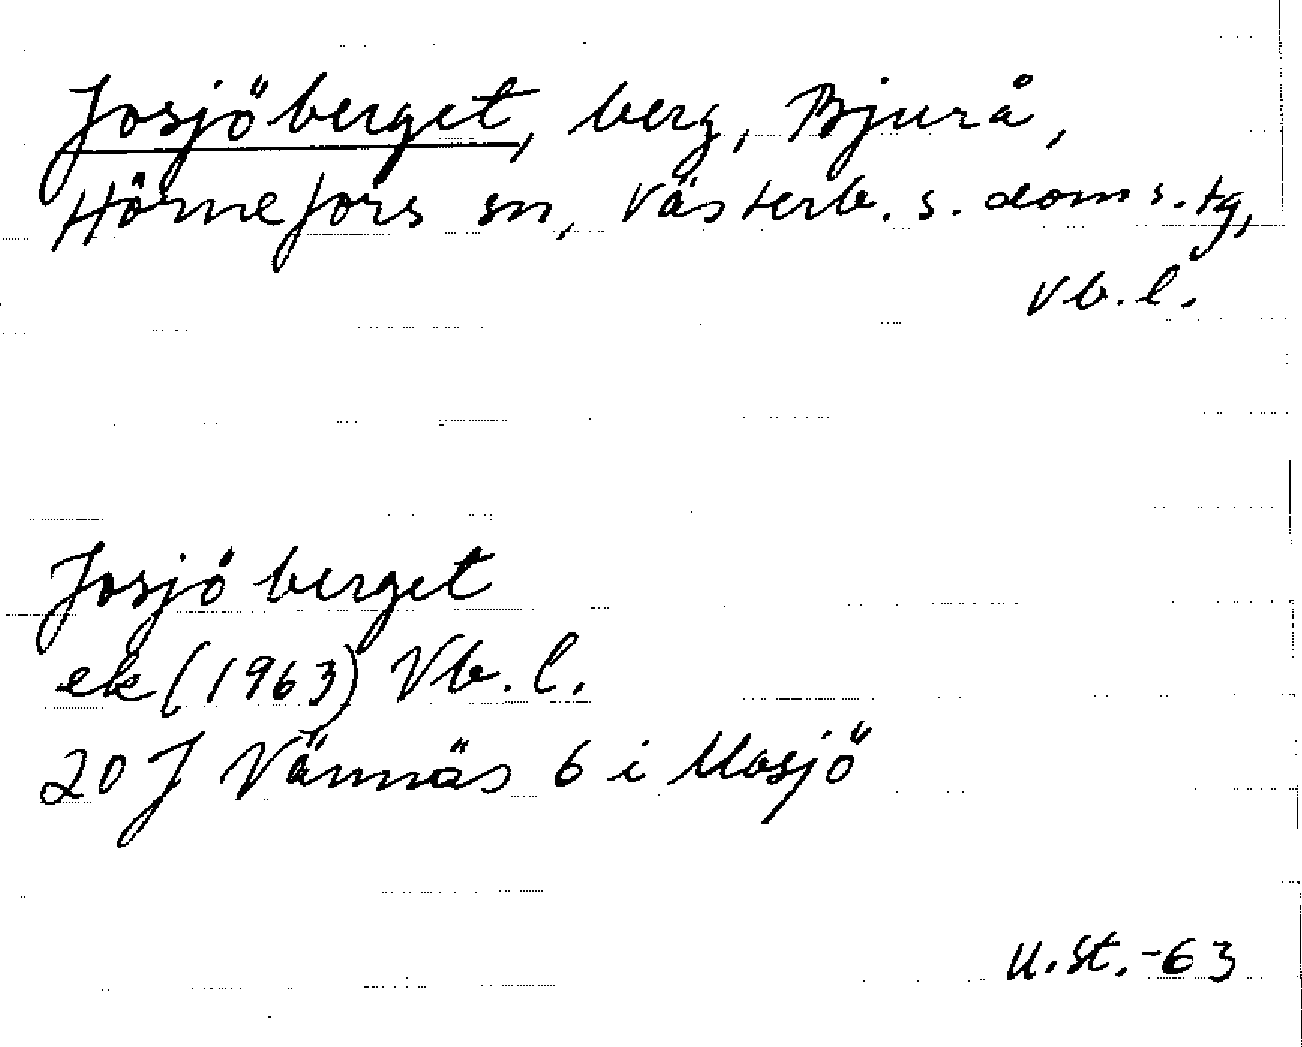 Josjöberget, berg, Bjurå,
Hörnefors sn, Västerb. s. doms.tg,
Vb. l.
Josjöberget
ek (1963) Vb. l.
20 J Vännäs 6 i Mosjö
U. St. -63